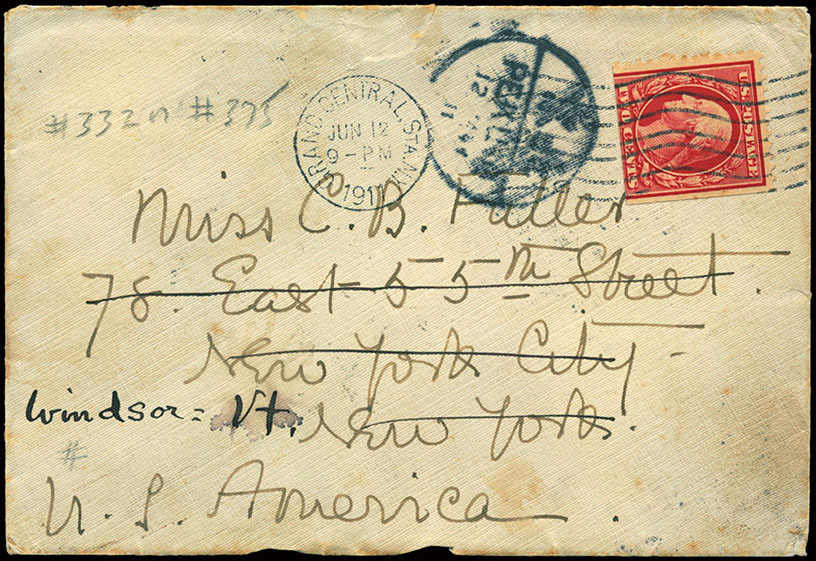 #332n #375
GRAND CENTRAL STA. N.Y.
JUN 12
9-PM
1911
PEKIN
12
11
U.S. POSTAGE
TWO CENTS
Miss C. B. Fuller
78. East 55th Street.
New York City
Windsor = Vt.
New York.
#
U. S. America.